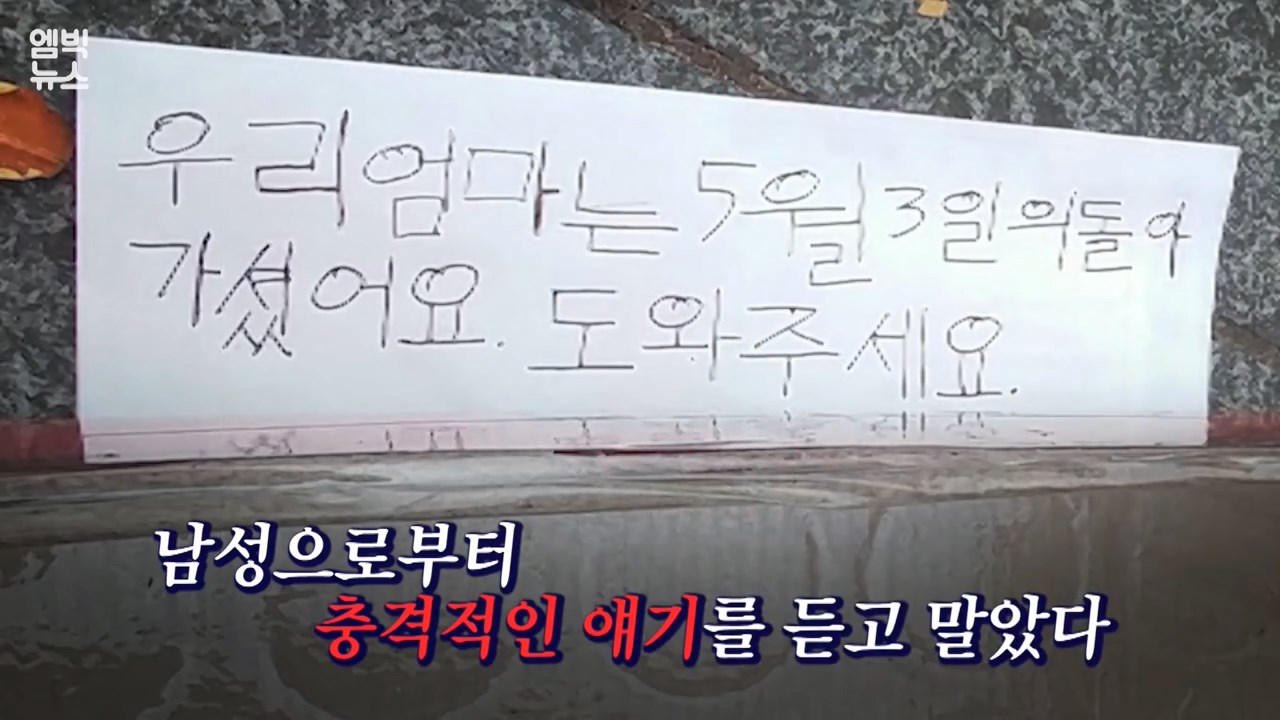 엠빅
뉴스
우리엄마는 5월3일의돌아
가셨어요. 도와주세요.
남성으로부터
충격적인 얘기를 듣고 말았다